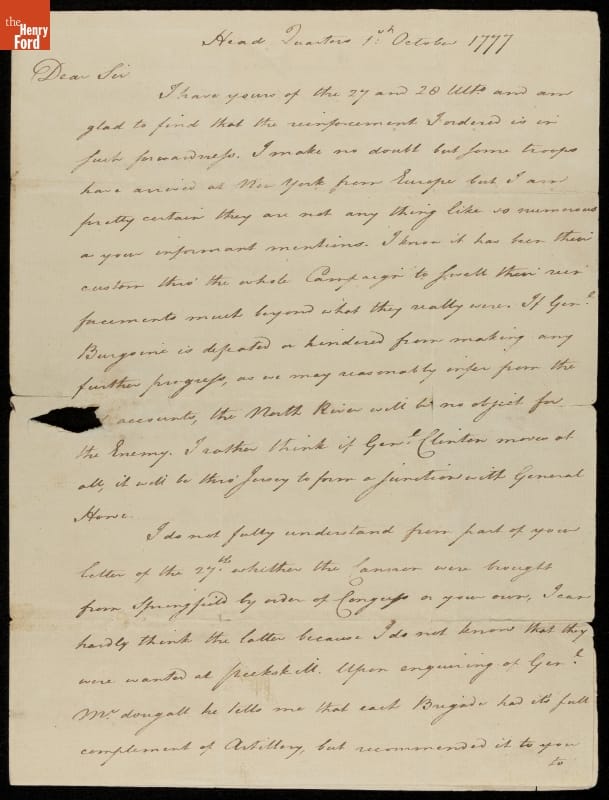 the
Henry
Ford
Head Quarters 1st October 1777
Dear Sir
I have yours of the 27 and 28 Ulto and am
glad to find that the reinforcement I ordered is in
such forwardness. I make no doubt but some troops
have arrived at New York from Europe but I am
pretty certain they are not any thing like so numerous
as your informant mentions. I know it has been their
custom thro the whole Campaign to swell their rein
forcements much beyond what they really were. If Genl
Burgoine is defeated or hindered from making any
further progress, as we may reasonably infer from the
accounts, the North River will be no object for
the Enemy. I rather think if Genl Clinton moves at
all, it will be thro Jersey to form a junction with General
Howe.
I do not fully understand from part of your
letter of the 27th whether the Cannon were brought
from Springfield by order of Congress or your own, I can
hardly think the latter because I do not know that they
were wanted at peekskill. Upon enquiring of Genl
McDougall he tells me that each Brigade had its full
complement of Artillery, but recommended it to you
to